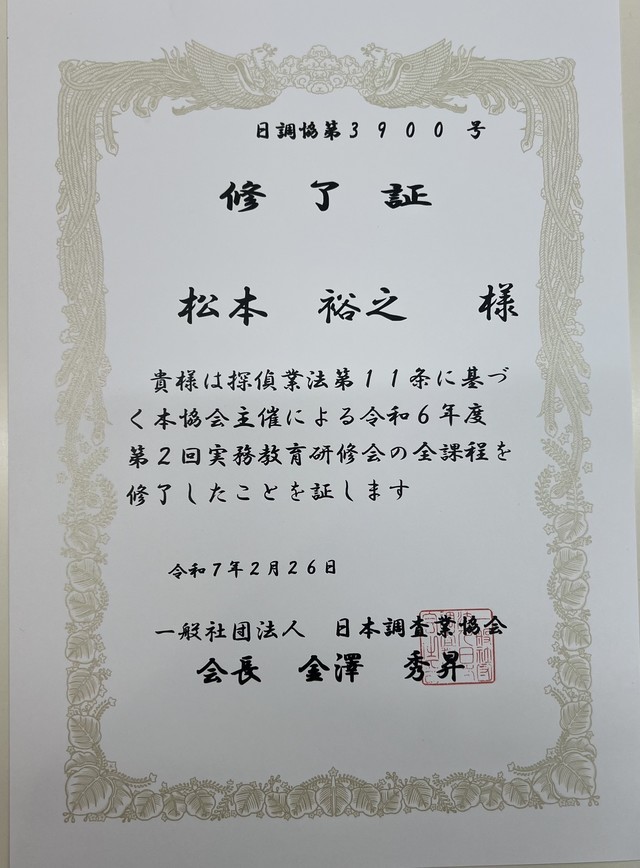 日調協第３９００号
修了証
松本　裕之　様
貴様は探偵業法第１１条に基づ
く本協会主催による令和６年度
第２回実務教育研修会の全課程を
修了したことを証します
令和７年２月２６日
一般社団法人　日本調査業協会
会長　金澤　秀昇